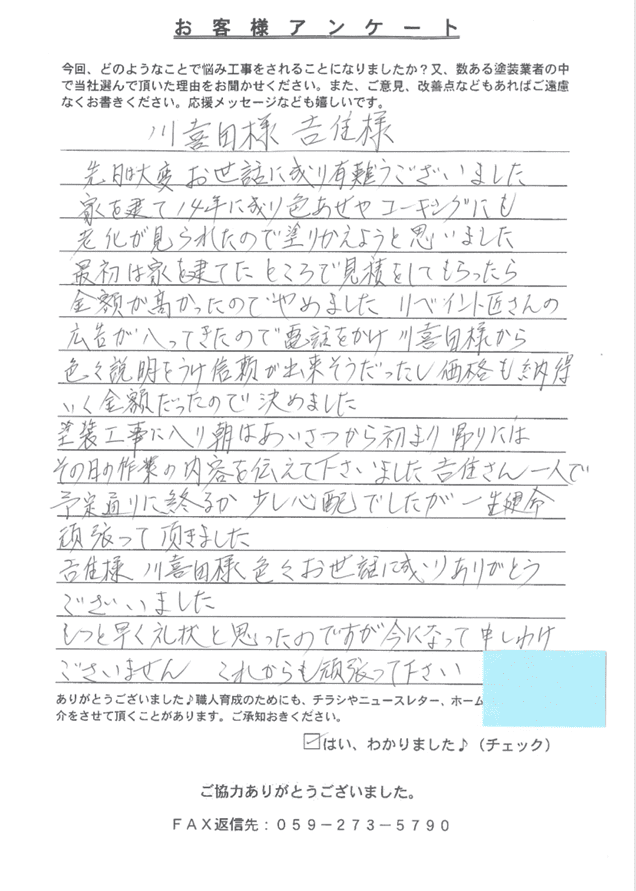 お客様アンケート
今回、どのようなことで悩み工事をされることになりましたか？又、数ある塗装業者の中
で当社選んで頂いた理由をお聞かせください。また、ご意見、改善点などもあればご遠慮
なくお書きください。応援メッセージなども嬉しいです。
川喜田様 吉住様
先日は大変 お世話に成り有難うございました
家を建て14年に成り色あせや コーキングにも
老化が見られたので塗りかえようと思いました
最初は家を建てた ところで見積をしてもらったら
金額が高かったのでやめました リペイント匠さんの
広告が入ってきたので電話をかけ 川喜田様から
色々説明をうけ信頼が出来そうだったし価格も納得
いく金額だったので決めました
塗装工事に入り朝はあいさつから初まり 帰りには
その日の作業の内容を伝えて下さいました 吉住さん一人で
予定通りに終るか 少し心配でしたが 一生懸命
頑張って頂きました
吉住様 川喜田様 色々お世話に成りありがとう
ございいました
もっと早く礼状と思ったのですが今になって申しわけ
ございません これからも頑張って下さい
ありがとうございました♪職人育成のためにも、チラシやニュースレター、ホーム
介をさせて頂くことがあります。ご承知おきください。
☑はい、わかりました♪（チェック）
ご協力ありがとうございました。
FAX返信先：059－273－5790